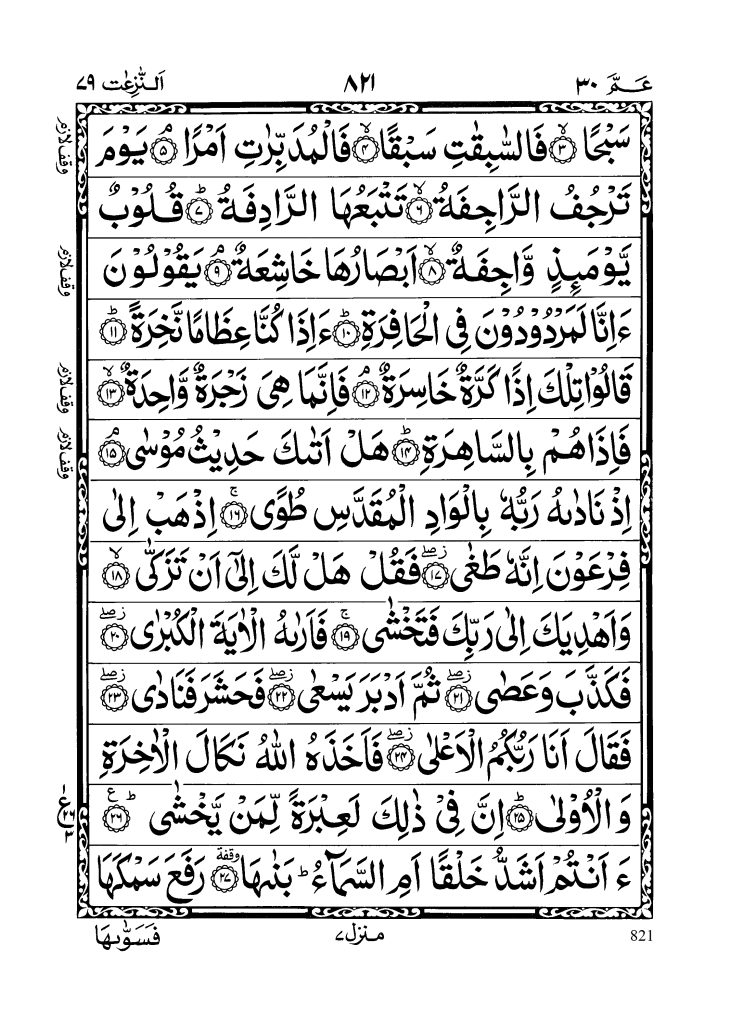 عَمَّ ٣٠ ٨٢١ اَلنّٰزِعٰت ٧٩
سَبْحًا ۙ﴿٣﴾ فَالسّٰبِقٰتِ سَبْقًا ۙ﴿٤﴾ فَالْمُدَبِّرٰتِ اَمْرًا ۘ﴿٥﴾ يَوْمَ
وقف لازم
تَرْجُفُ الرَّاجِفَةُ ۙ﴿٦﴾ تَتْبَعُهَا الرَّادِفَةُ ؕ﴿٧﴾ قُلُوْبٌ
يَّوْمَىِٕذٍ وَّاجِفَةٌ ۙ﴿٨﴾ اَبْصَارُهَا خَاشِعَةٌ ۘ﴿٩﴾ يَقُوْلُوْنَ
وقف لازم
ءَاِنَّا لَمَرْدُوْدُوْنَ فِى الْحَافِرَةِ ؕ﴿١٠﴾ ءَاِذَا كُنَّا عِظَامًا نَّخِرَةً ؕ﴿١١﴾
قَالُوْا تِلْكَ اِذًا كَرَّةٌ خَاسِرَةٌ ۘ﴿١٢﴾ فَاِنَّمَا هِىَ زَجْرَةٌ وَّاحِدَةٌ ۙ﴿١٣﴾
وقف لازم
فَاِذَا هُمْ بِالسَّاهِرَةِ ؕ﴿١٤﴾ هَلْ اَتٰىكَ حَدِيْثُ مُوْسٰى ۘ﴿١٥﴾
وقف لازم
اِذْ نَادٰىهُ رَبُّهٗ بِالْوَادِ الْمُقَدَّسِ طُوًى ۚ﴿١٦﴾ اِذْهَبْ اِلٰى
فِرْعَوْنَ اِنَّهٗ طَغٰى ۖ﴿١٧﴾ فَقُلْ هَلْ لَّكَ اِلٰٓى اَنْ تَزَكّٰى ۙ﴿١٨﴾
وَاَهْدِيَكَ اِلٰى رَبِّكَ فَتَخْشٰى ۚ﴿١٩﴾ فَاَرٰىهُ الْاٰيَةَ الْكُبْرٰى ۖ﴿٢٠﴾
فَكَذَّبَ وَعَصٰى ۖ﴿٢١﴾ ثُمَّ اَدْبَرَ يَسْعٰى ۖ﴿٢٢﴾ فَحَشَرَ فَنَادٰى ۖ﴿٢٣﴾
فَقَالَ اَنَا رَبُّكُمُ الْاَعْلٰى ۖ﴿٢٤﴾ فَاَخَذَهُ اللّٰهُ نَكَالَ الْاٰخِرَةِ
وَالْاُوْلٰى ؕ﴿٢٥﴾ اِنَّ فِىْ ذٰلِكَ لَعِبْرَةً لِّمَنْ يَّخْشٰى ؕ﴿٢٦﴾
ع ٢٦
ءَاَنْتُمْ اَشَدُّ خَلْقًا اَمِ السَّمَآءُ ؕ بَنٰىهَا ﴿٢٧﴾ وقفة رَفَعَ سَمْكَهَا
821 منزل ٧ فَسَوّٰىهَا